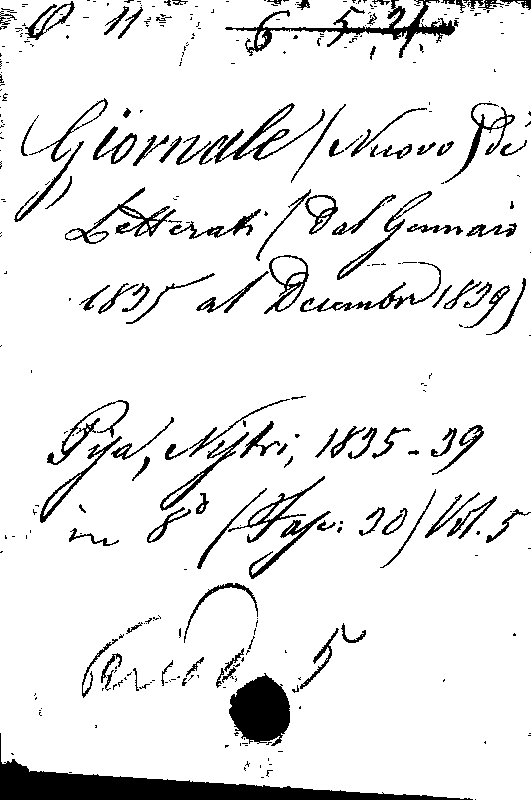 O. 11 6. 5, 21.
Giornale (Nuovo) de'
Letterati (Dal Gennaio
1835 al Dicembre 1839)
Pisa, Nistri, 1835-39
in 8° (Fasc: 30) Vol. 5
Period 5